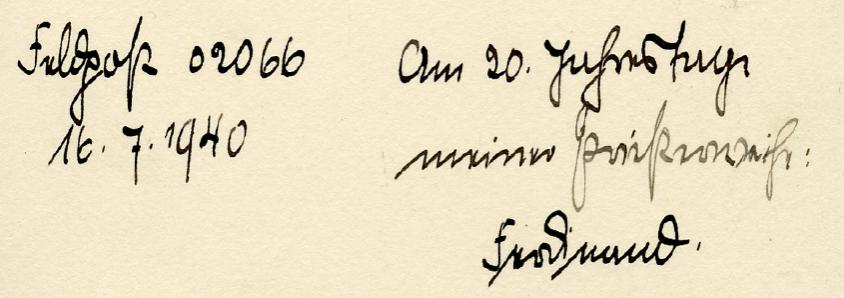 Feldpost 02066
16.7.1940
Am 20. Jahrestage
meiner Priesterweihe:
Ferdinand.